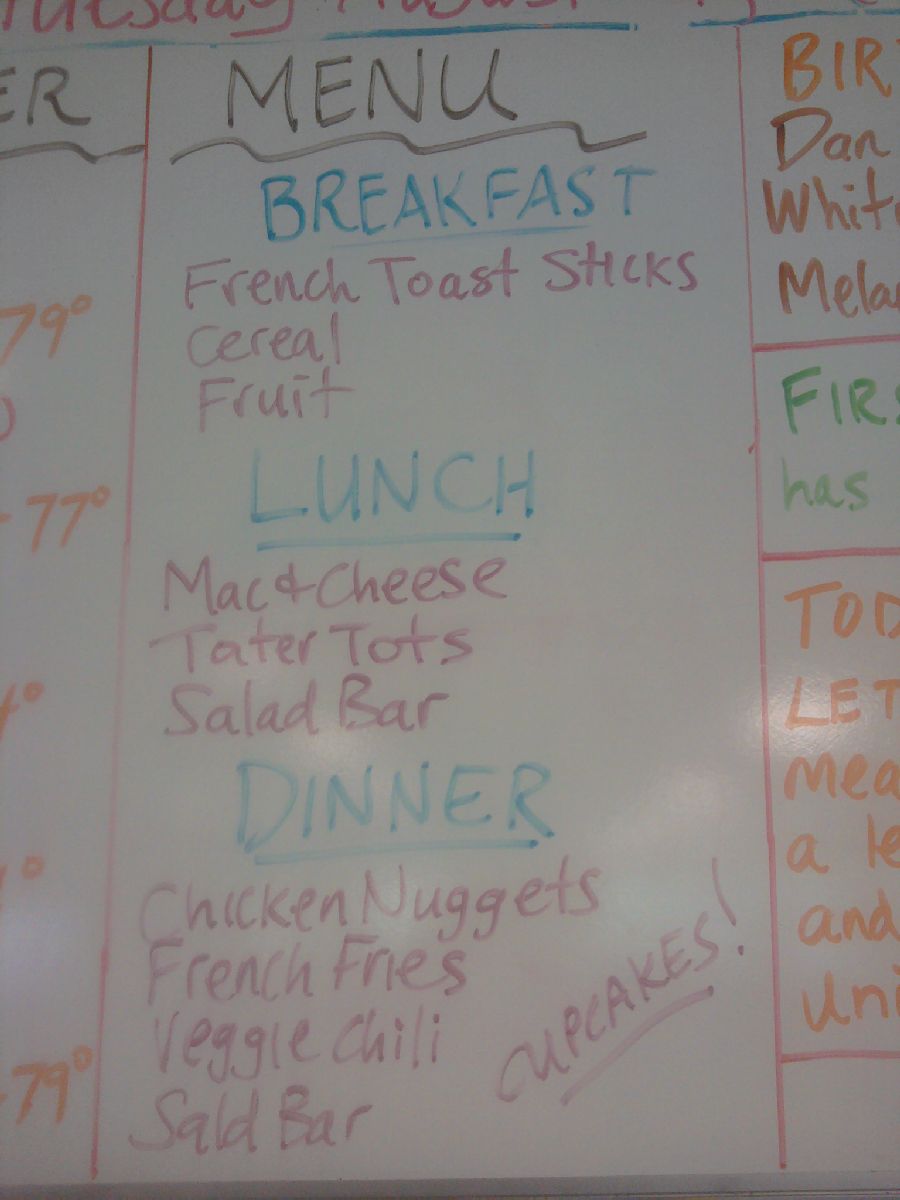 Tuesday August
ER
79°
77°
79°
MENU
BREAKFAST
French Toast Sticks
Cereal
Fruit
LUNCH
Mac & Cheese
Tater Tots
Salad Bar
DINNER
Chicken Nuggets
French Fries
Veggie Chili
Sald Bar
CUPCAKES!
BIR
Dan
Whit
Mela
FIRS
has
TOD
LET
mea
a le
and
uni